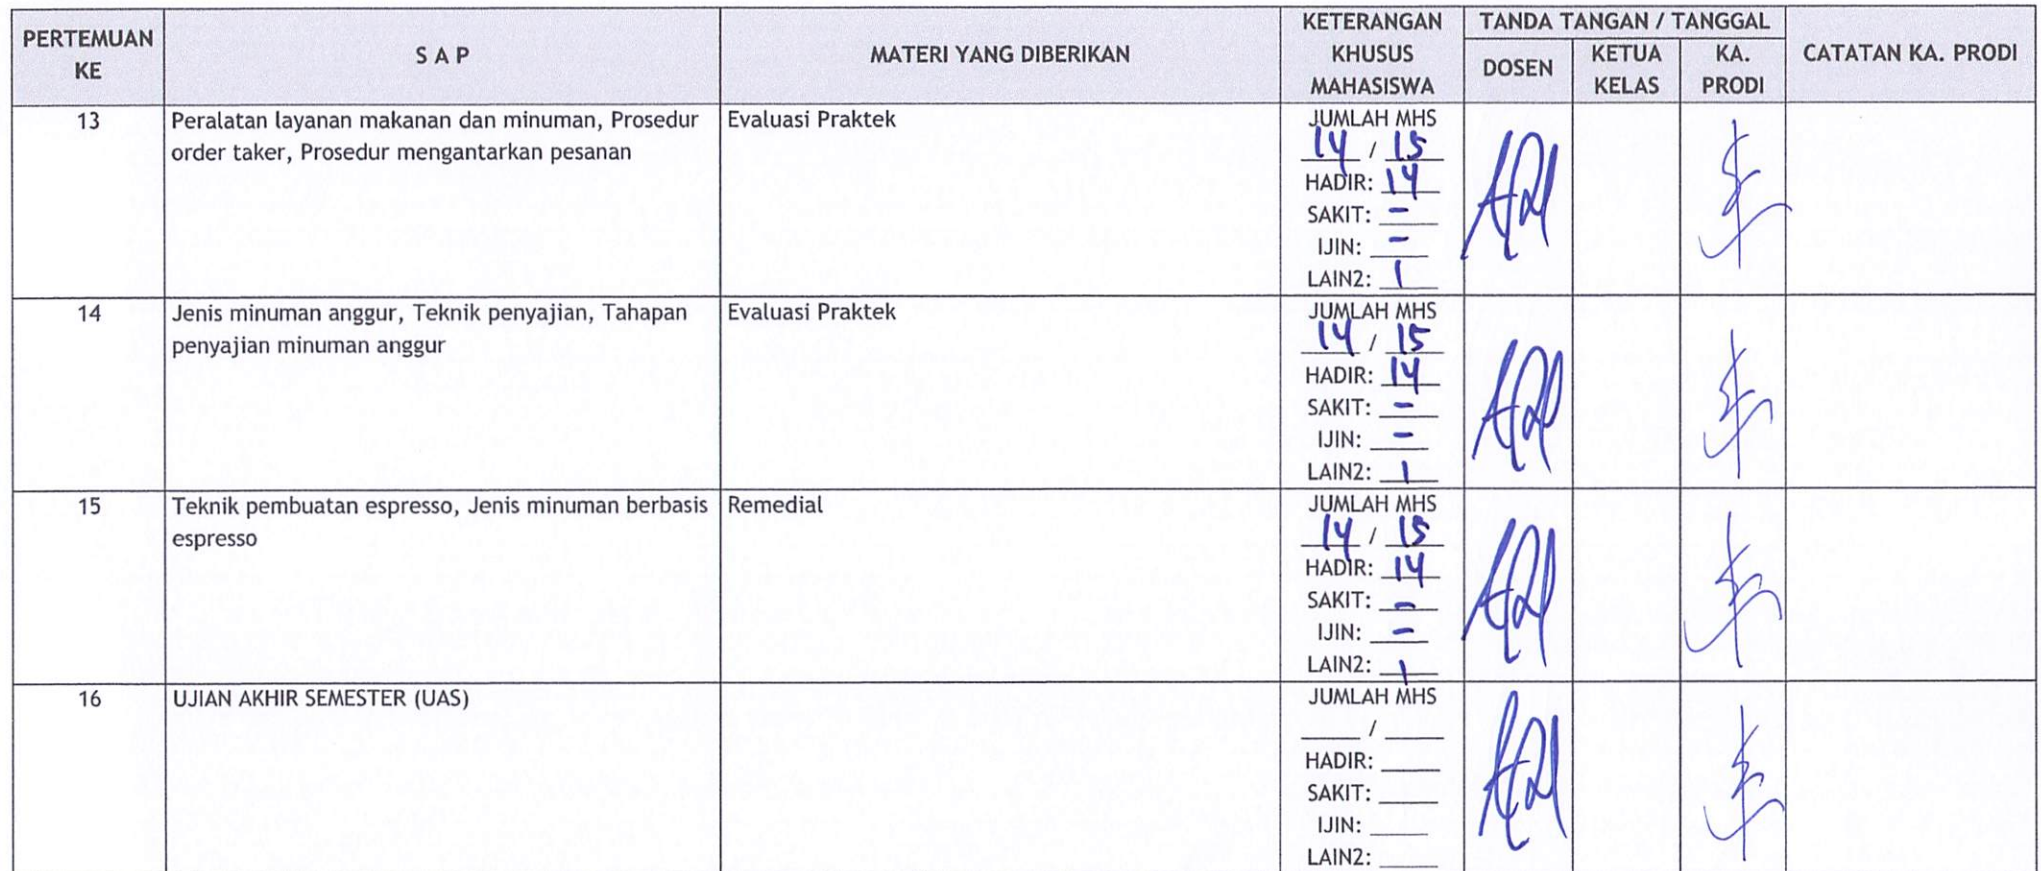 PERTEMUAN KE
S A P
MATERI YANG DIBERIKAN
KETERANGAN KHUSUS MAHASISWA
TANDA TANGAN / TANGGAL
DOSEN
KETUA KELAS
KA. PRODI
CATATAN KA. PRODI
13
Peralatan layanan makanan dan minuman, Prosedur
order taker, Prosedur mengantarkan pesanan
Evaluasi Praktek
JUMLAH MHS
14 / 15
HADIR: 14
SAKIT: -
IJIN: -
LAIN2: 1
14
Jenis minuman anggur, Teknik penyajian, Tahapan
penyajian minuman anggur
Evaluasi Praktek
JUMLAH MHS
14 / 15
HADIR: 14
SAKIT: -
IJIN: -
LAIN2: 1
15
Teknik pembuatan espresso, Jenis minuman berbasis
espresso
Remedial
JUMLAH MHS
14 / 15
HADIR: 14
SAKIT: -
IJIN: -
LAIN2: 1
16
UJIAN AKHIR SEMESTER (UAS)
JUMLAH MHS
/
HADIR:
SAKIT:
IJIN:
LAIN2: